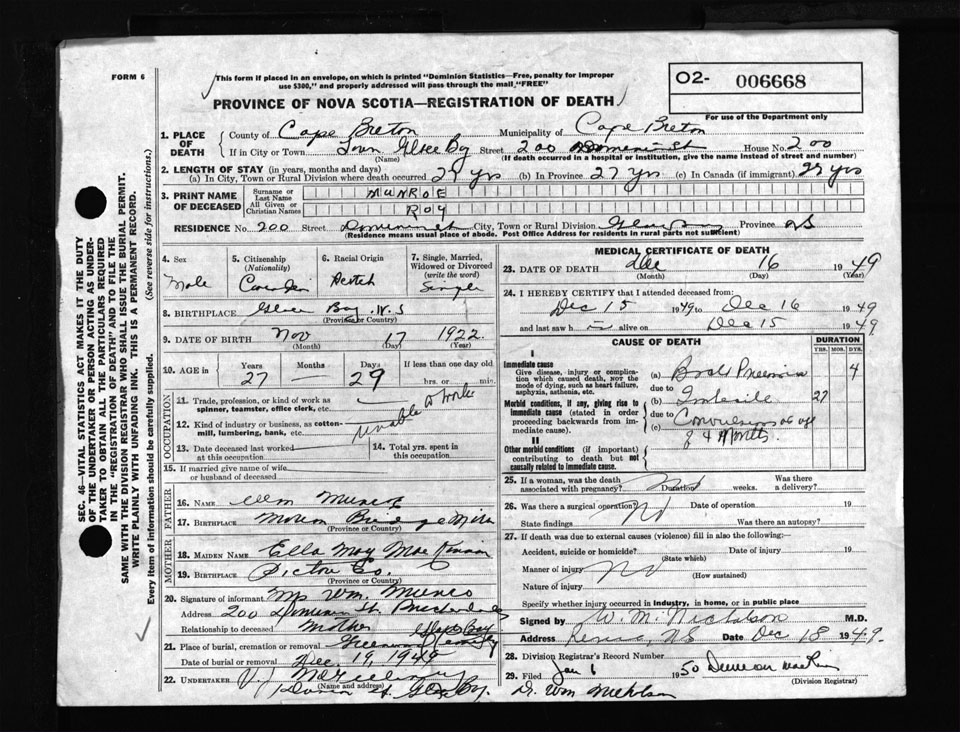 FORM 6
This form if placed in an envelope, on which is printed "Dominion Statistics—Free, penalty for improper
use $300," and properly addressed will pass through the mail "FREE"
O2- 006668
PROVINCE OF NOVA SCOTIA—REGISTRATION OF DEATH
For use of the Department only
1. PLACE OF DEATH
County of Cape Breton Municipality of Cape Breton
If in City or Town Town Glace Bay Street 200 House No. 200
(Name) (If death occurred in a hospital or institution, give the name instead of street and number)
2. LENGTH OF STAY (in years, months and days)
(a) In City, Town or Rural Division where death occurred 27 yrs (b) In Province 27 yrs (c) In Canada (if immigrant) 27 yrs
3. PRINT NAME OF DECEASED
Surname or Last Name MUNROE
All Given or Christian Names ROY
RESIDENCE No. 200 Street City, Town or Rural Division Glace Bay Province NS
(Residence means usual place of abode. Post Office Address for residents in rural parts not sufficient)
4. Sex Male
5. Citizenship (Nationality) Canadian
6. Racial Origin Scotch
7. Single, Married, Widowed or Divorced (write the word) Single
8. BIRTHPLACE Glace Bay N.S
(Province or Country)
9. DATE OF BIRTH Nov 17 1922
(Month) (Day) (Year)
10. AGE in Years 27 Months — Days 29 If less than one day old hrs. or min.
OCCUPATION
11. Trade, profession, or kind of work as spinner, teamster, office clerk, etc.
12. Kind of industry or business, as cotton-mill, lumbering, bank, etc. unable to work
13. Date deceased last worked at this occupation
14. Total yrs. spent in this occupation
15. If married give name of wife or husband of deceased
FATHER
16. NAME Wm Munroe
17. BIRTHPLACE Marion Bridge Mira
(Province or Country)
MOTHER
18. MAIDEN NAME Ella May MacKinnon
19. BIRTHPLACE Pictou Co.
(Province or Country)
20. Signature of informant Mrs Wm. Munro
Address 200 St.
Relationship to deceased Mother Glace Bay
21. Place of burial, cremation or removal Greenwood Cemetery
Date of burial or removal Dec. 19, 1949
22. UNDERTAKER V.J.
(Name and address) Glace Bay.
MEDICAL CERTIFICATE OF DEATH
23. DATE OF DEATH Dec 16 1949
(Month) (Day) (Year)
24. I HEREBY CERTIFY that I attended deceased from:
Dec 15 1949 to Dec 16 1949
and last saw h im alive on Dec 15 1949
CAUSE OF DEATH
DURATION
YRS. MOS. DYS.
I
Immediate cause
Give disease, injury or complication which caused death, NOT the mode of dying, such as heart failure, asphyxia, asthenia, etc.
(a) Pneumonia 4
due to
Morbid conditions, if any, giving rise to immediate cause (stated in order proceeding backwards from immediate cause).
(b) Imbecile 27
due to
(c) Convulsions at age
of 4 Months
II
Other morbid conditions (if important) contributing to death but not causally related to immediate cause.
25. If a woman, was the death associated with pregnancy? No Duration weeks. Was there a delivery?
26. Was there a surgical operation? No Date of operation 19
State findings Was there an autopsy?
27. If death was due to external causes (violence) fill in also the following:
Accident, suicide or homicide? Date of injury 19
(State which)
Manner of injury No
(How sustained)
Nature of injury
Specify whether injury occurred in industry, in home, or in public place
Signed by W. M. Nicholson M.D.
Address NS Date Dec 18 1949.
28. Division Registrar's Record Number
29. Filed Jan 6 1950 Duncan
(Division Registrar)
Dr. Wm
SEC. 46—VITAL STATISTICS ACT MAKES IT THE DUTY
OF THE UNDERTAKER OR PERSON ACTING AS UNDER-
TAKER TO OBTAIN ALL THE PARTICULARS REQUIRED
IN THE "REGISTRATION OF DEATH" AND TO FILE THE
SAME WITH THE DIVISION REGISTRAR WHO SHALL ISSUE THE BURIAL PERMIT.
WRITE PLAINLY WITH UNFADING INK. THIS IS A PERMANENT RECORD.
Every item of information should be carefully supplied. (See reverse side for instructions.)